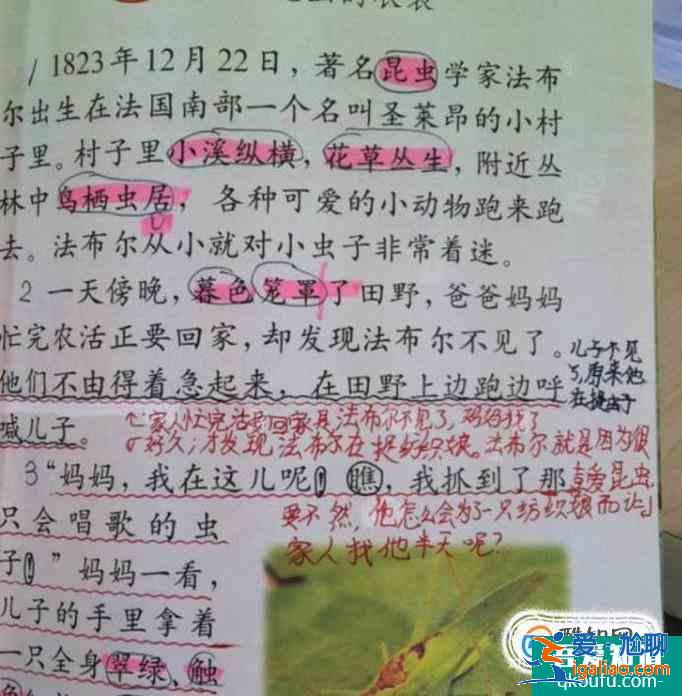 / 1823年12月22日，著名昆虫学家法布
尔出生在法国南部一个名叫圣莱昂的小村
子里。村子里小溪纵横，花草丛生，附近丛
林中鸟栖虫居，各种可爱的小动物跑来跑
去。法布尔从小就对小虫子非常着迷。
2 一天傍晚，暮色笼罩了田野，爸爸妈妈
忙完农活正要回家，却发现法布尔不见了。
儿子不见
了，原来他
在捉虫子
他们不由得着急起来，在田野上边跑边呼
喊儿子。
家人忙完活要回家是，法布尔不见了，妈妈找了
好久，才发现法布尔在捉纺织娘。法布尔就是因为很
喜爱昆虫，
要不然，他怎么会为了一只纺织娘而让
家人找他半天呢？
3 “妈妈，我在这儿呢！瞧，我抓到了那
只会唱歌的虫
子！”妈妈一看，
儿子的手里拿着
一只全身翠绿、触
爱尴聊
igaoliao.com